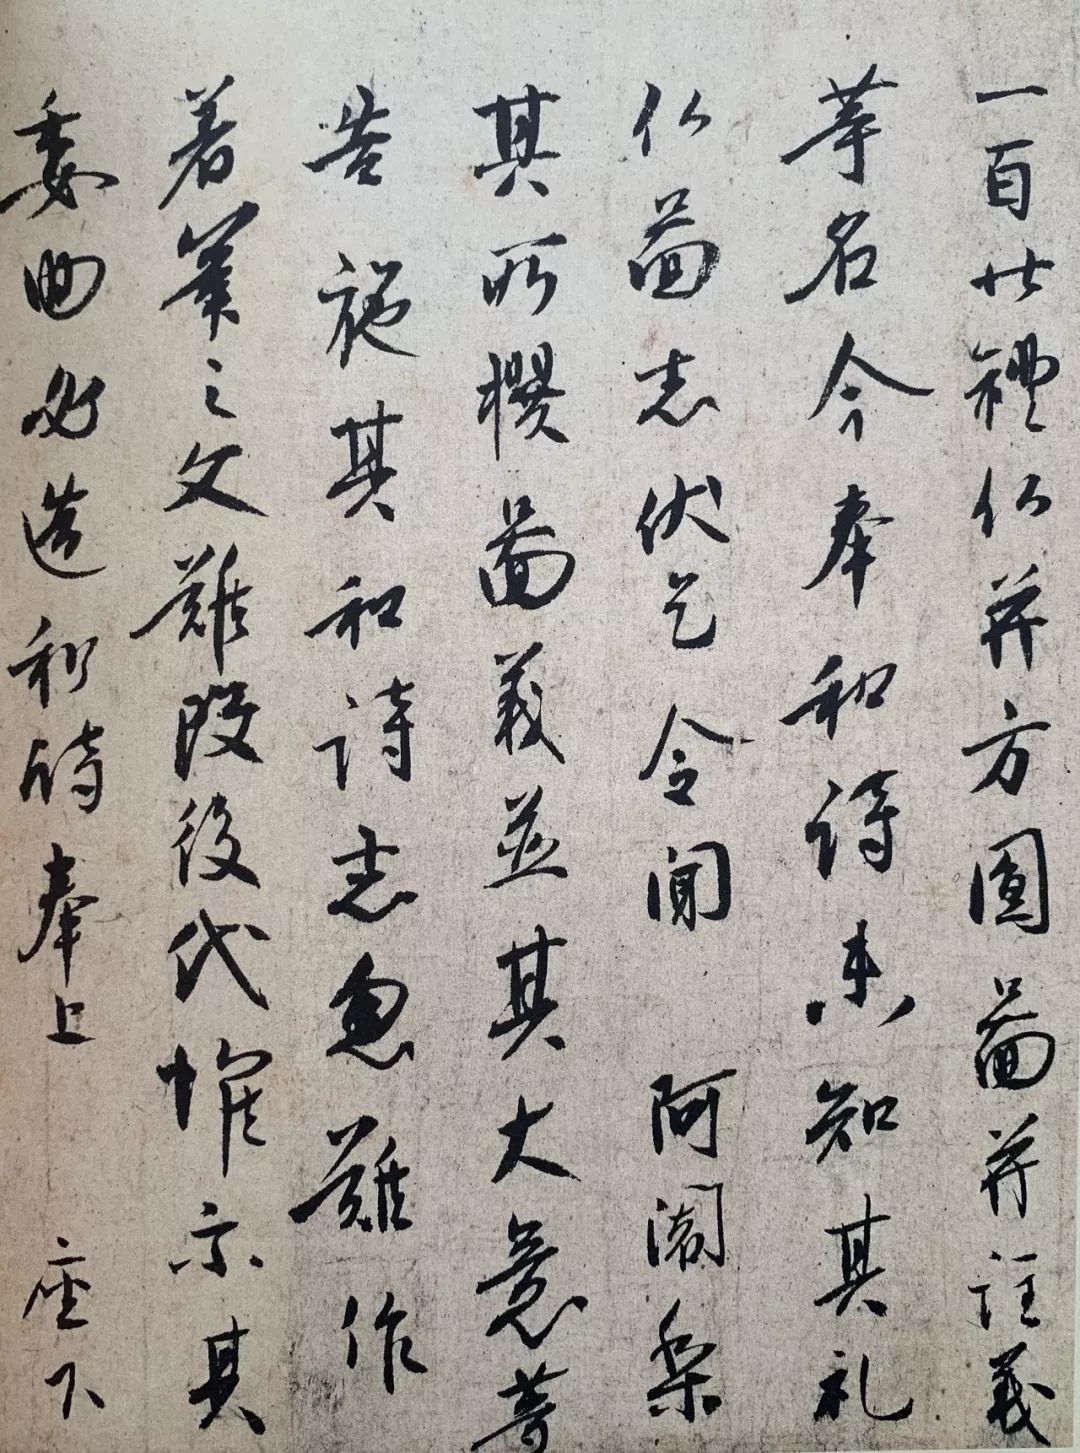 一百廿禮仏并方圓圖并註義
等名今奉和詩未知其礼
仏圖者伏乞令聞 阿闍梨
其所撰圖義並其大意等
告施其和詩者忽難作
著筆之文難改後代惟示其
委曲必造和詩奉上 座下